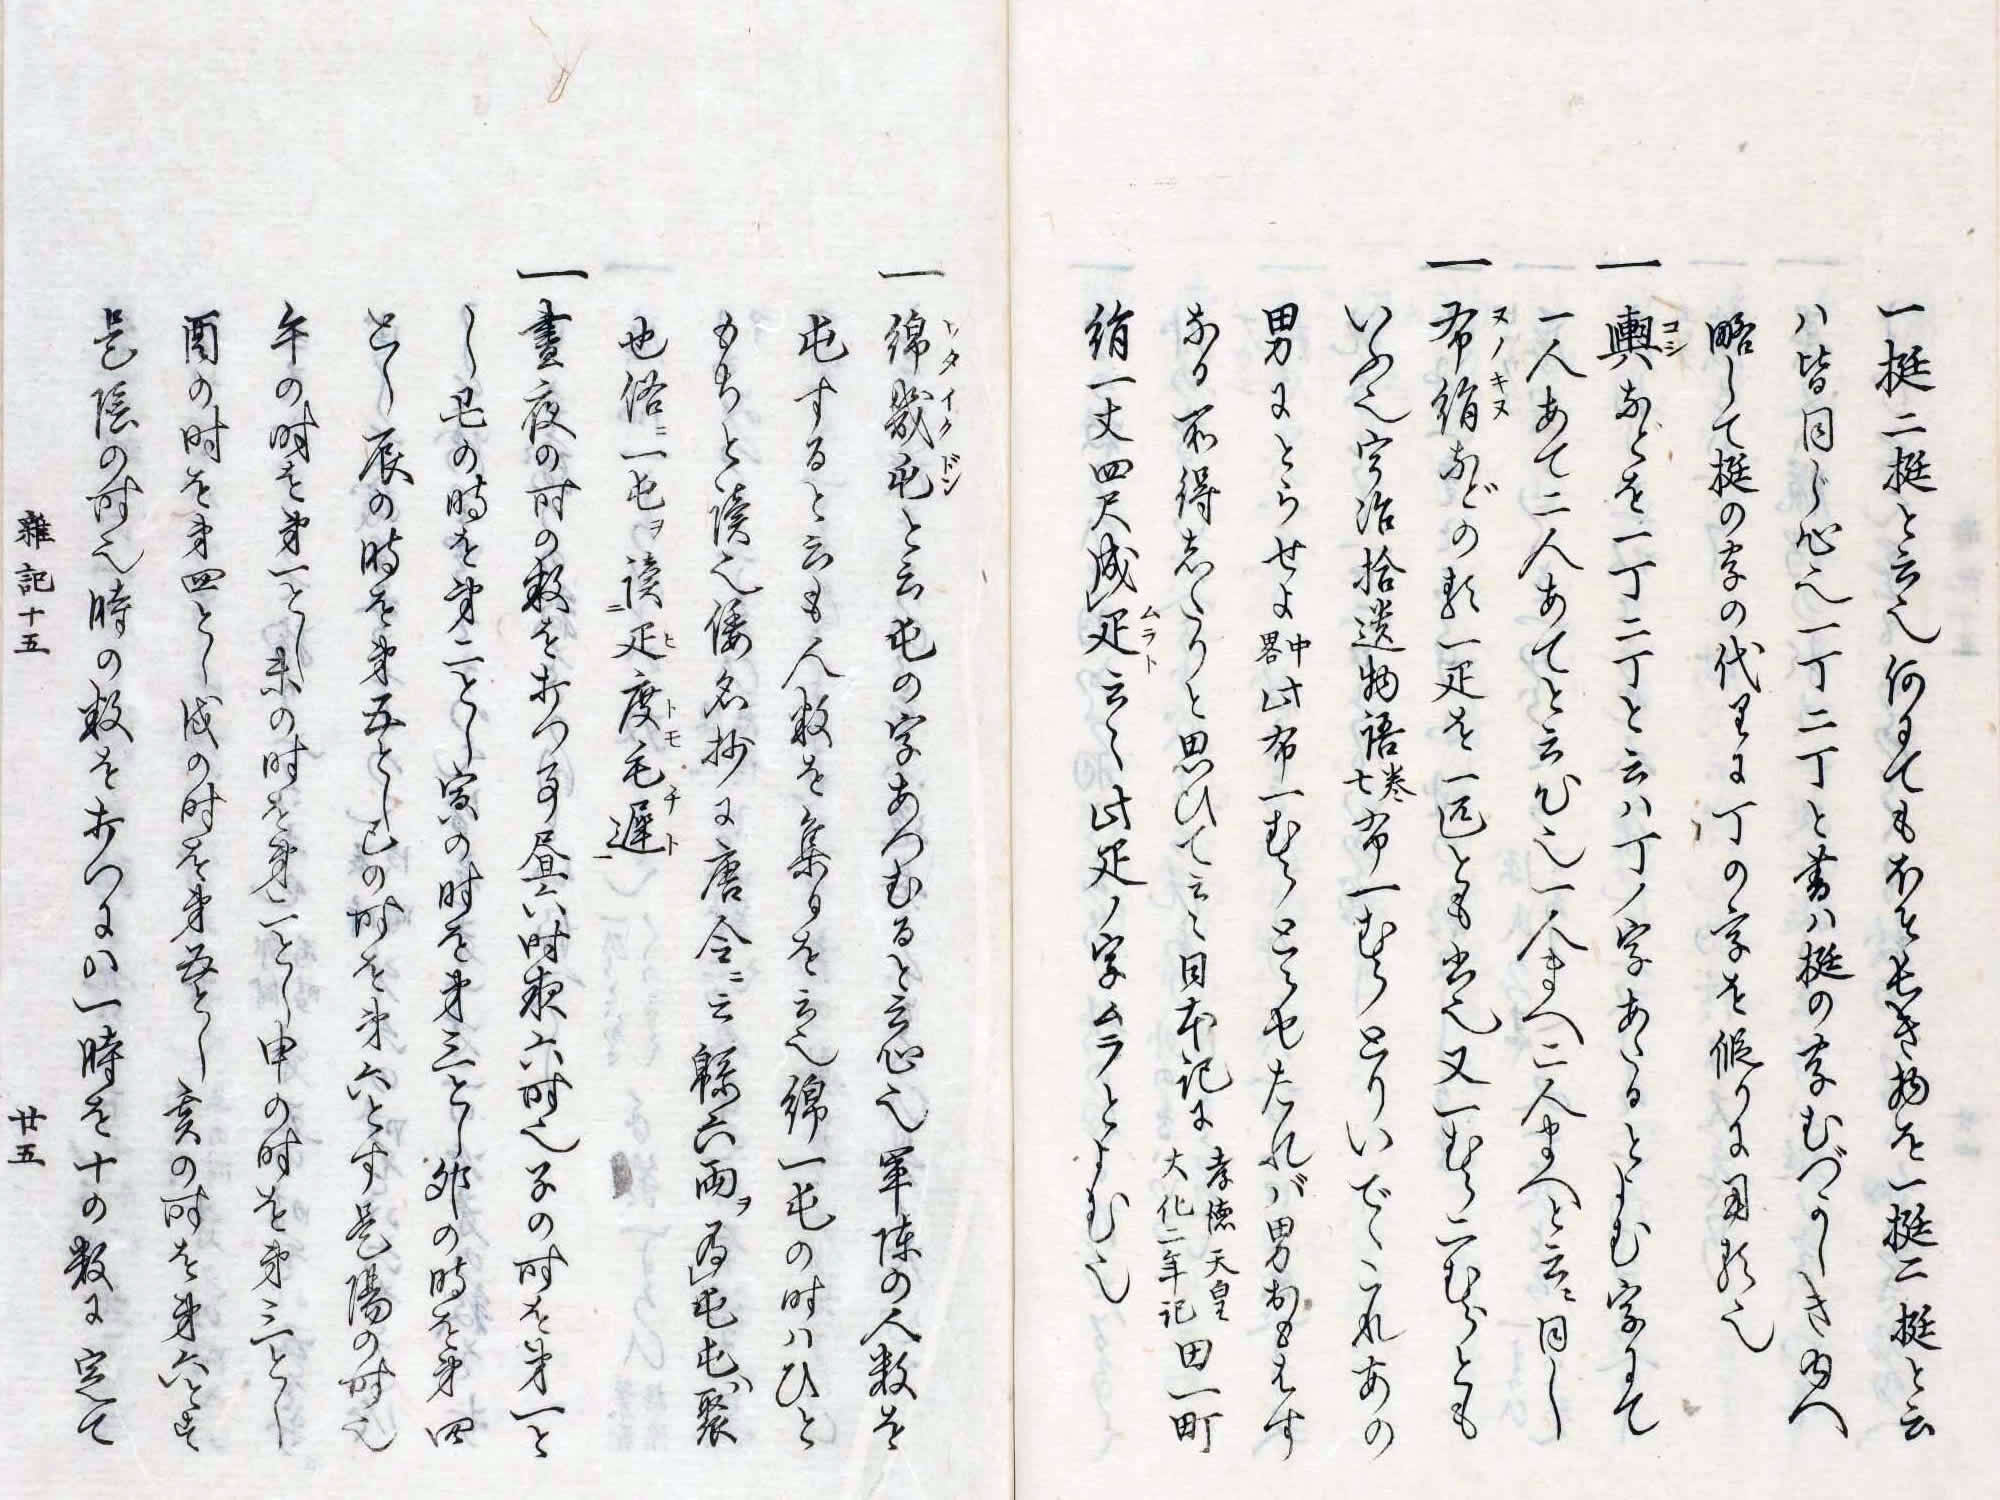 一挺二挺と云也何にても木ほそ長き物を一挺二挺と云
ハ皆同じ心也一丁二丁と書ハ挺の字むづかしき故へ
略して挺の字の代りに丁の字を假りに用類也
一輿コシなどを一丁二丁と云ハ丁ノ字あたるとよむ字にて
一人あて二人あてと云心也一人まへ二人まへと云ニ同し
一布ヌノ絹キヌなどの類一疋を一匹とも書也又一むら二むらとも
いふ也宇治拾遺物語巻七布一むらとりいでゝこれあの
男にとらせよ中畧此布一むらとらせたれバ男おもはす
なる所得したりと思ひて云々日本記に孝徳天皇大化二年記田一町
絹一丈四尺成疋ムラト云々此疋ノ字ムラとよむ也
一綿ワタ幾イク屯ドンと云屯の字あつむると云心也軍陳の人数を
屯すると云も人数を集るを云也綿一屯の時ハひと
もちと讀也倭名抄に唐令ニ云緜六両ヲ為屯屯ハ聚
也俗ニ一屯ヲ讀ニ疋ヒ度ト毛モ遅チト
一晝夜の时の数を打つ事昼六时夜六时也子の时を第一と
し丑の時を第二とし寅の时を第三とし卯の時を第四
とし辰の時を第五とし巳の时を第六とす是陽の时也
午の时を第一とし未の时を第二とし申の时を第三とし
酉の时を第四とし戌の时を第五とし亥の时を第六とす
是陰の时也時の数を打つにハ一時を十の数に定て
雑記十五
廿五